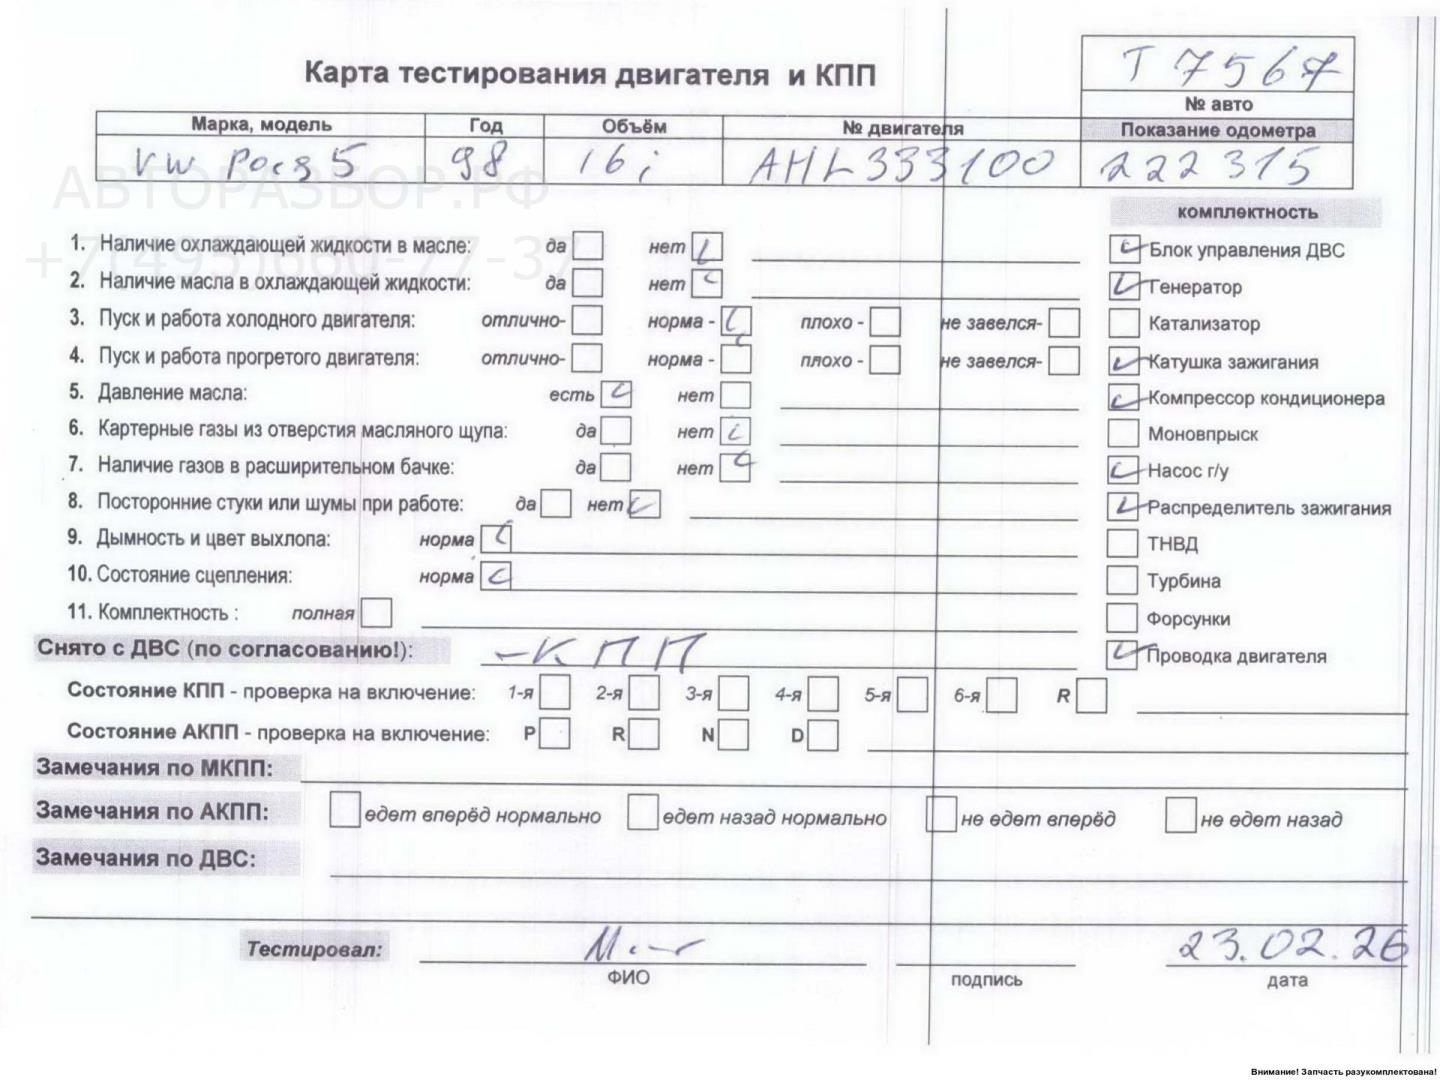 Карта тестирования двигателя и КПП
Т 7567
№ авто
Марка, модель Год Объём № двигателя Показание одометра
VW 98 16i AHL333100 222 315
АВТОРАЗБОР.РФ
+7(495)660-77-37
комплектность
1. Наличие охлаждающей жидкости в масле: да нет
2. Наличие масла в охлаждающей жидкости: да нет
3. Пуск и работа холодного двигателя: отлично- норма - плохо - не завелся-
4. Пуск и работа прогретого двигателя: отлично- норма - плохо - не завелся-
5. Давление масла: есть нет
6. Картерные газы из отверстия масляного щупа: да нет
7. Наличие газов в расширительном бачке: да нет
8. Посторонние стуки или шумы при работе: да нет
9. Дымность и цвет выхлопа: норма
10. Состояние сцепления: норма
11. Комплектность : полная
Блок управления ДВС
Генератор
Катализатор
Катушка зажигания
Компрессор кондиционера
Моновпрыск
Насос г/у
Распределитель зажигания
ТНВД
Турбина
Форсунки
Проводка двигателя
Снято с ДВС (по согласованию!): -КПП
Состояние КПП - проверка на включение: 1-я 2-я 3-я 4-я 5-я 6-я R
Состояние АКПП - проверка на включение: P R N D
Замечания по МКПП:
Замечания по АКПП: едет вперёд нормально едет назад нормально не едет вперёд не едет назад
Замечания по ДВС:
Тестировал: 23.02.26
ФИО подпись дата
Внимание! Запчасть разукомплектована!